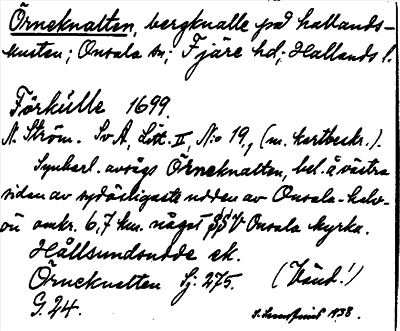 Örneknalten, bergknalle på hallands-
kusten; Onsala sn; Fjäre hd; Hallands l.
Förkülle 1699.
N. Ström. Sv A, Litt. II, N:o 19, (m. kartbeskr.).
Synbarl. avsågs Örneknalten, bel. å västra
sidan av sydöstligaste udden av Onsala-halv-
ön omkr. 6,7 km. något S V Onsala kyrka.
Hållsundsudde ek.
Örneknalten Sj. 275. (Vänd!)
G. 24. 1938.